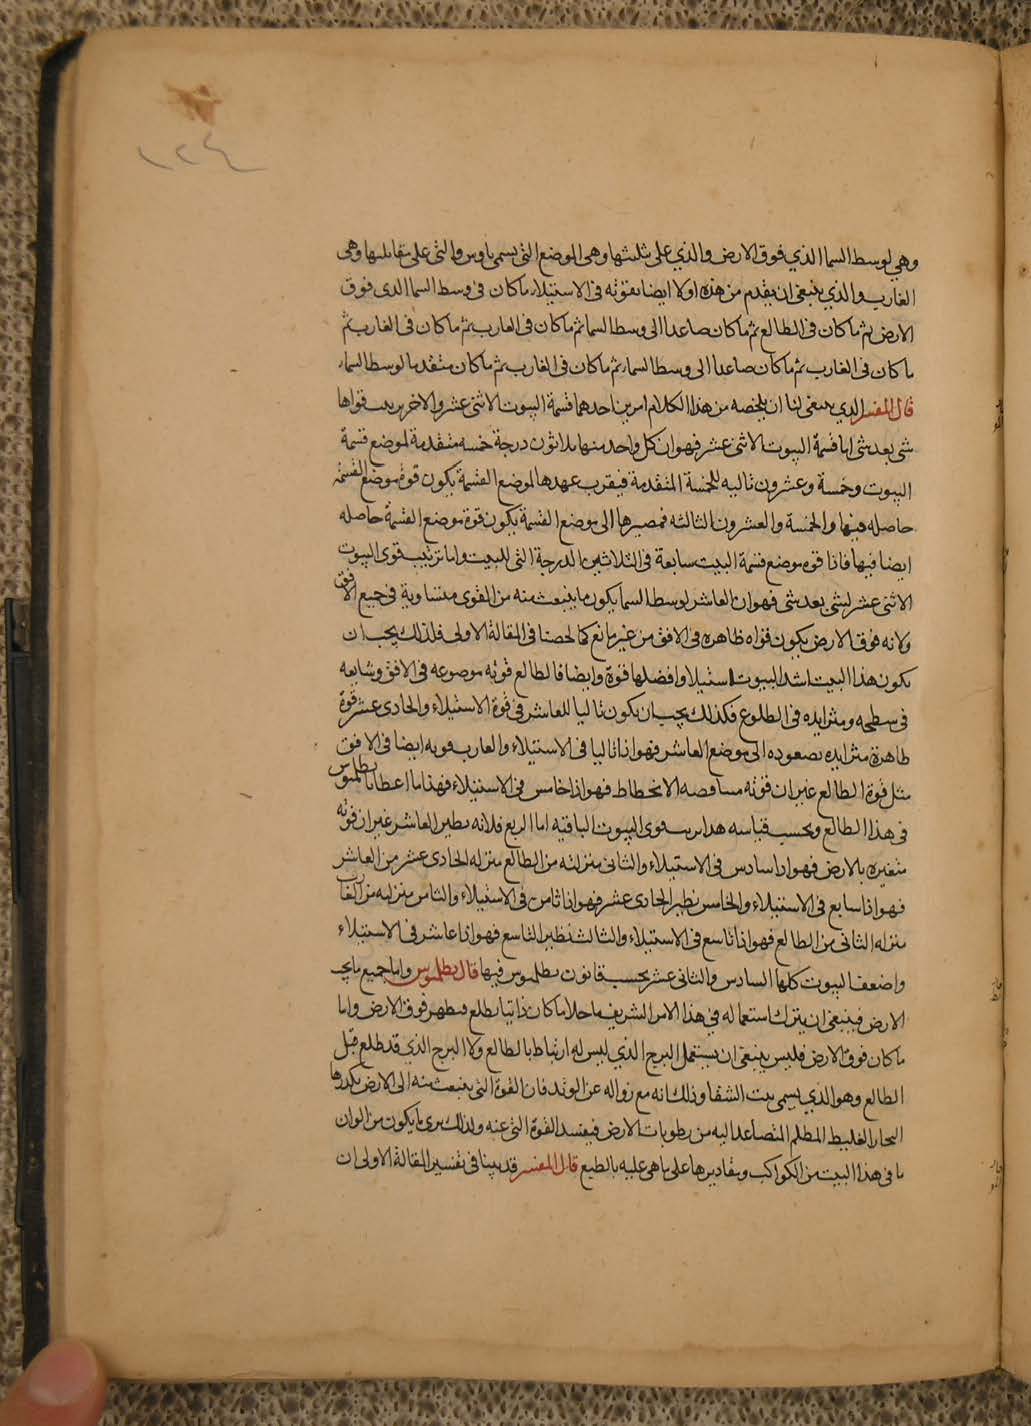 ١٢٤
وهي لوسط السما الذي فوق الارض والذي على تثليثها وهي الموضع التي يسمى والتي على مقابلتها وهي
الغارب والذي ينبغي ان يقدم من هذه اولا ايضا بقوته في الاستيلاء ما كان في وسط السما الذي فوق
الارض ثم ما كان في الطالع ثم ما كان صاعدا الى وسط السما ثم ما كان في الغارب ثم ما كان في الغارب ثم
ما كان في الغارب ثم ما كان صاعدا الى وسط السماء ثم ما كان في الغارب ثم ما كان متقدما لوسط السماء
قال المفسر الذي ينبغي لنا ان يلخصه من هذا الكلام امرين احدهما قسمة البيوت الاثنى عشر والاخر قواها
شي بعد شي اما قسمة البيوت الاثنى عشر فهو ان كل واحد منها ثلاثون درجة خمسه متقدمة لموضع قسمة
البيوت وخمسة وعشرون تاليه للخمسة المتقدمة فيقرب عهدها لموضع القسمة يكون قوة موضع القسمة
حاصله فيها والخمسة والعشرون التالثه فمصيرها الى موضع القسمة يكون قوة موضع القسمة حاصله
ايضا فيها فاذا قوة موضع قسمة البيت سابعة في الثلاثين الدرجة التي للبيت واما ترتيب قوى البيوت
الاثنى عشر لشي بعد شي فهو ان العاشر لوسط السما يكون ما ينبعث منه من القوى متساوية في جميع الافق
ولانه فوق الارض يكون قواه ظاهرة في الافق من غير مانع كما لخصنا في المقالة الاولى فلذلك يجب ان
يكون هذا البيت اشد البيوت استيلاء وافضلها قوة وايضا فالطالع قوته موضوعه في الافق وشايعه
في سطحه ومتزايده في الطلوع فكذلك يجب ان يكون تاليا للعاشر في قوة الاستيلاء والحادى عشر قوة
ظاهرة متزايده بصعوده الى موضع العاشر فهو اذا تاليا في الاستيلاء والغارب قوته ايضا في الافق
مثل قوة الطالع غير ان قوته متناقصه الانحطاط فهو اذا خامس في الاستيلاء فهذا ما اعطانا بطلميوس
في هذا الطالع وبحسب قياسه هذا قوى البيوت الباقيه اما الربع فلانه نظير العاشر غير ان قوته
متغيرة بالارض فهو اذا سادس في الاستيلاء والثانى منزلته من الطالع منزلة الحادى عشر من العاشر
فهو اذا سابع في الاستيلاء والخامس نظير الحادى عشر فهو اذا ثامن في الاستيلاء والثامن منزلته من الغارب
منزلة الثانى من الطالع فهو اذا تاسع في الاستيلاء والثالث نظير التاسع فهو اذا عاشر في الاستيلاء
واضعف البيوت كلها السادس والثانى عشر بحسب قانون بطلميوس فيها قال بطلميوس واما جميع ما تحت
الارض فينبغي ان يترك استعماله في هذا الامر الشريف ما خلا ما كان ذاتيا يطلع فيظهر فوق الارض واما
ما كان فوق الارض فليس ينبغي ان يستعمل البرج الذي ليس له ارتباط بالطالع ولا البرج الذي قد طلع قبل
الطالع وهو الذي يسمى بيت الشقا وذلك انه مع زواله عن الوتد فان القوة التي ينبعث منه الى الارض يكدرها
البخار الغليظ المظلم المتصاعد اليه من رطوبات الارض فيفسد القوة التي عنه ولذلك يرى ما يكون من الوان
ما في هذا البيت من الكواكب ومقاديرها على ما هي عليه بالطبع قال المفسر قد بينا في تفسير المقالة الاولى ان